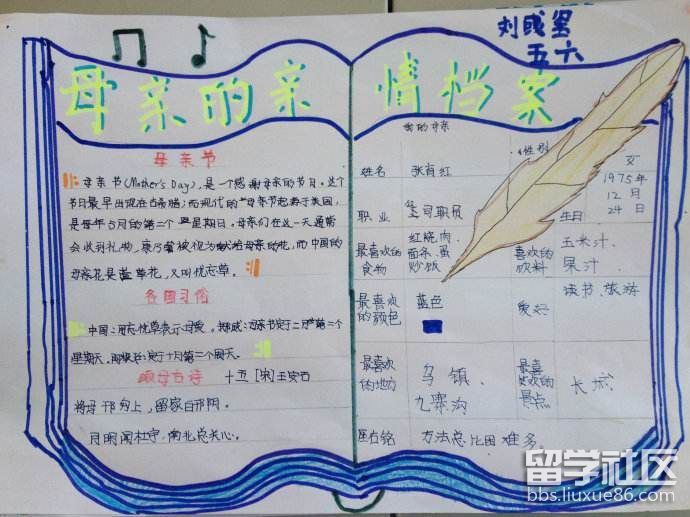 刘彧圣
五六
母亲的亲情档案
母亲节
母亲节(Mother's Day),是一个感谢母亲的节日。这个
节日最早出现在古希腊;而现代的母亲节起源于美国,
是每年5月的第二个星期日。母亲们在这一天通常
会收到礼物,康乃馨被视为献给母亲的花,而中国的
母亲花是萱草花,又叫忧忘草。
各国习俗
中国:用忘忧草表示母爱。挪威:母亲节定于二月第二个
星期天。阿根廷:定于十月第二个周天。
颂母古诗
十五 [宋]王安石
将母邗沟上,留家白邗阴。
月明闻杜宇,南北总关心。
我的母亲
姓名 张育红 性别 女
职业 公司职员 生日 1975年
12月
24日
最喜欢的食物 红烧肉、面条、蛋炒饭 喜欢的饮料 玉米汁、果汁
最喜欢的颜色 蓝色 爱好 读书、旅游
最喜欢的地方 乌镇、九寨沟 最喜欢的景点 长城
座右铭 方法总比困难多。
留学社区
bbs.liuxue86.com